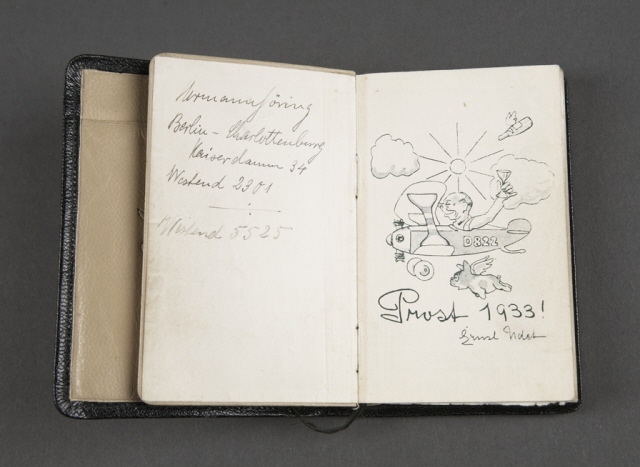 Hermann Göring
Berlin - Charlottenburg
Kaiserdamm 34
Westend 2301
Westend 5525
D822
Prost 1933!
Ernst Udet